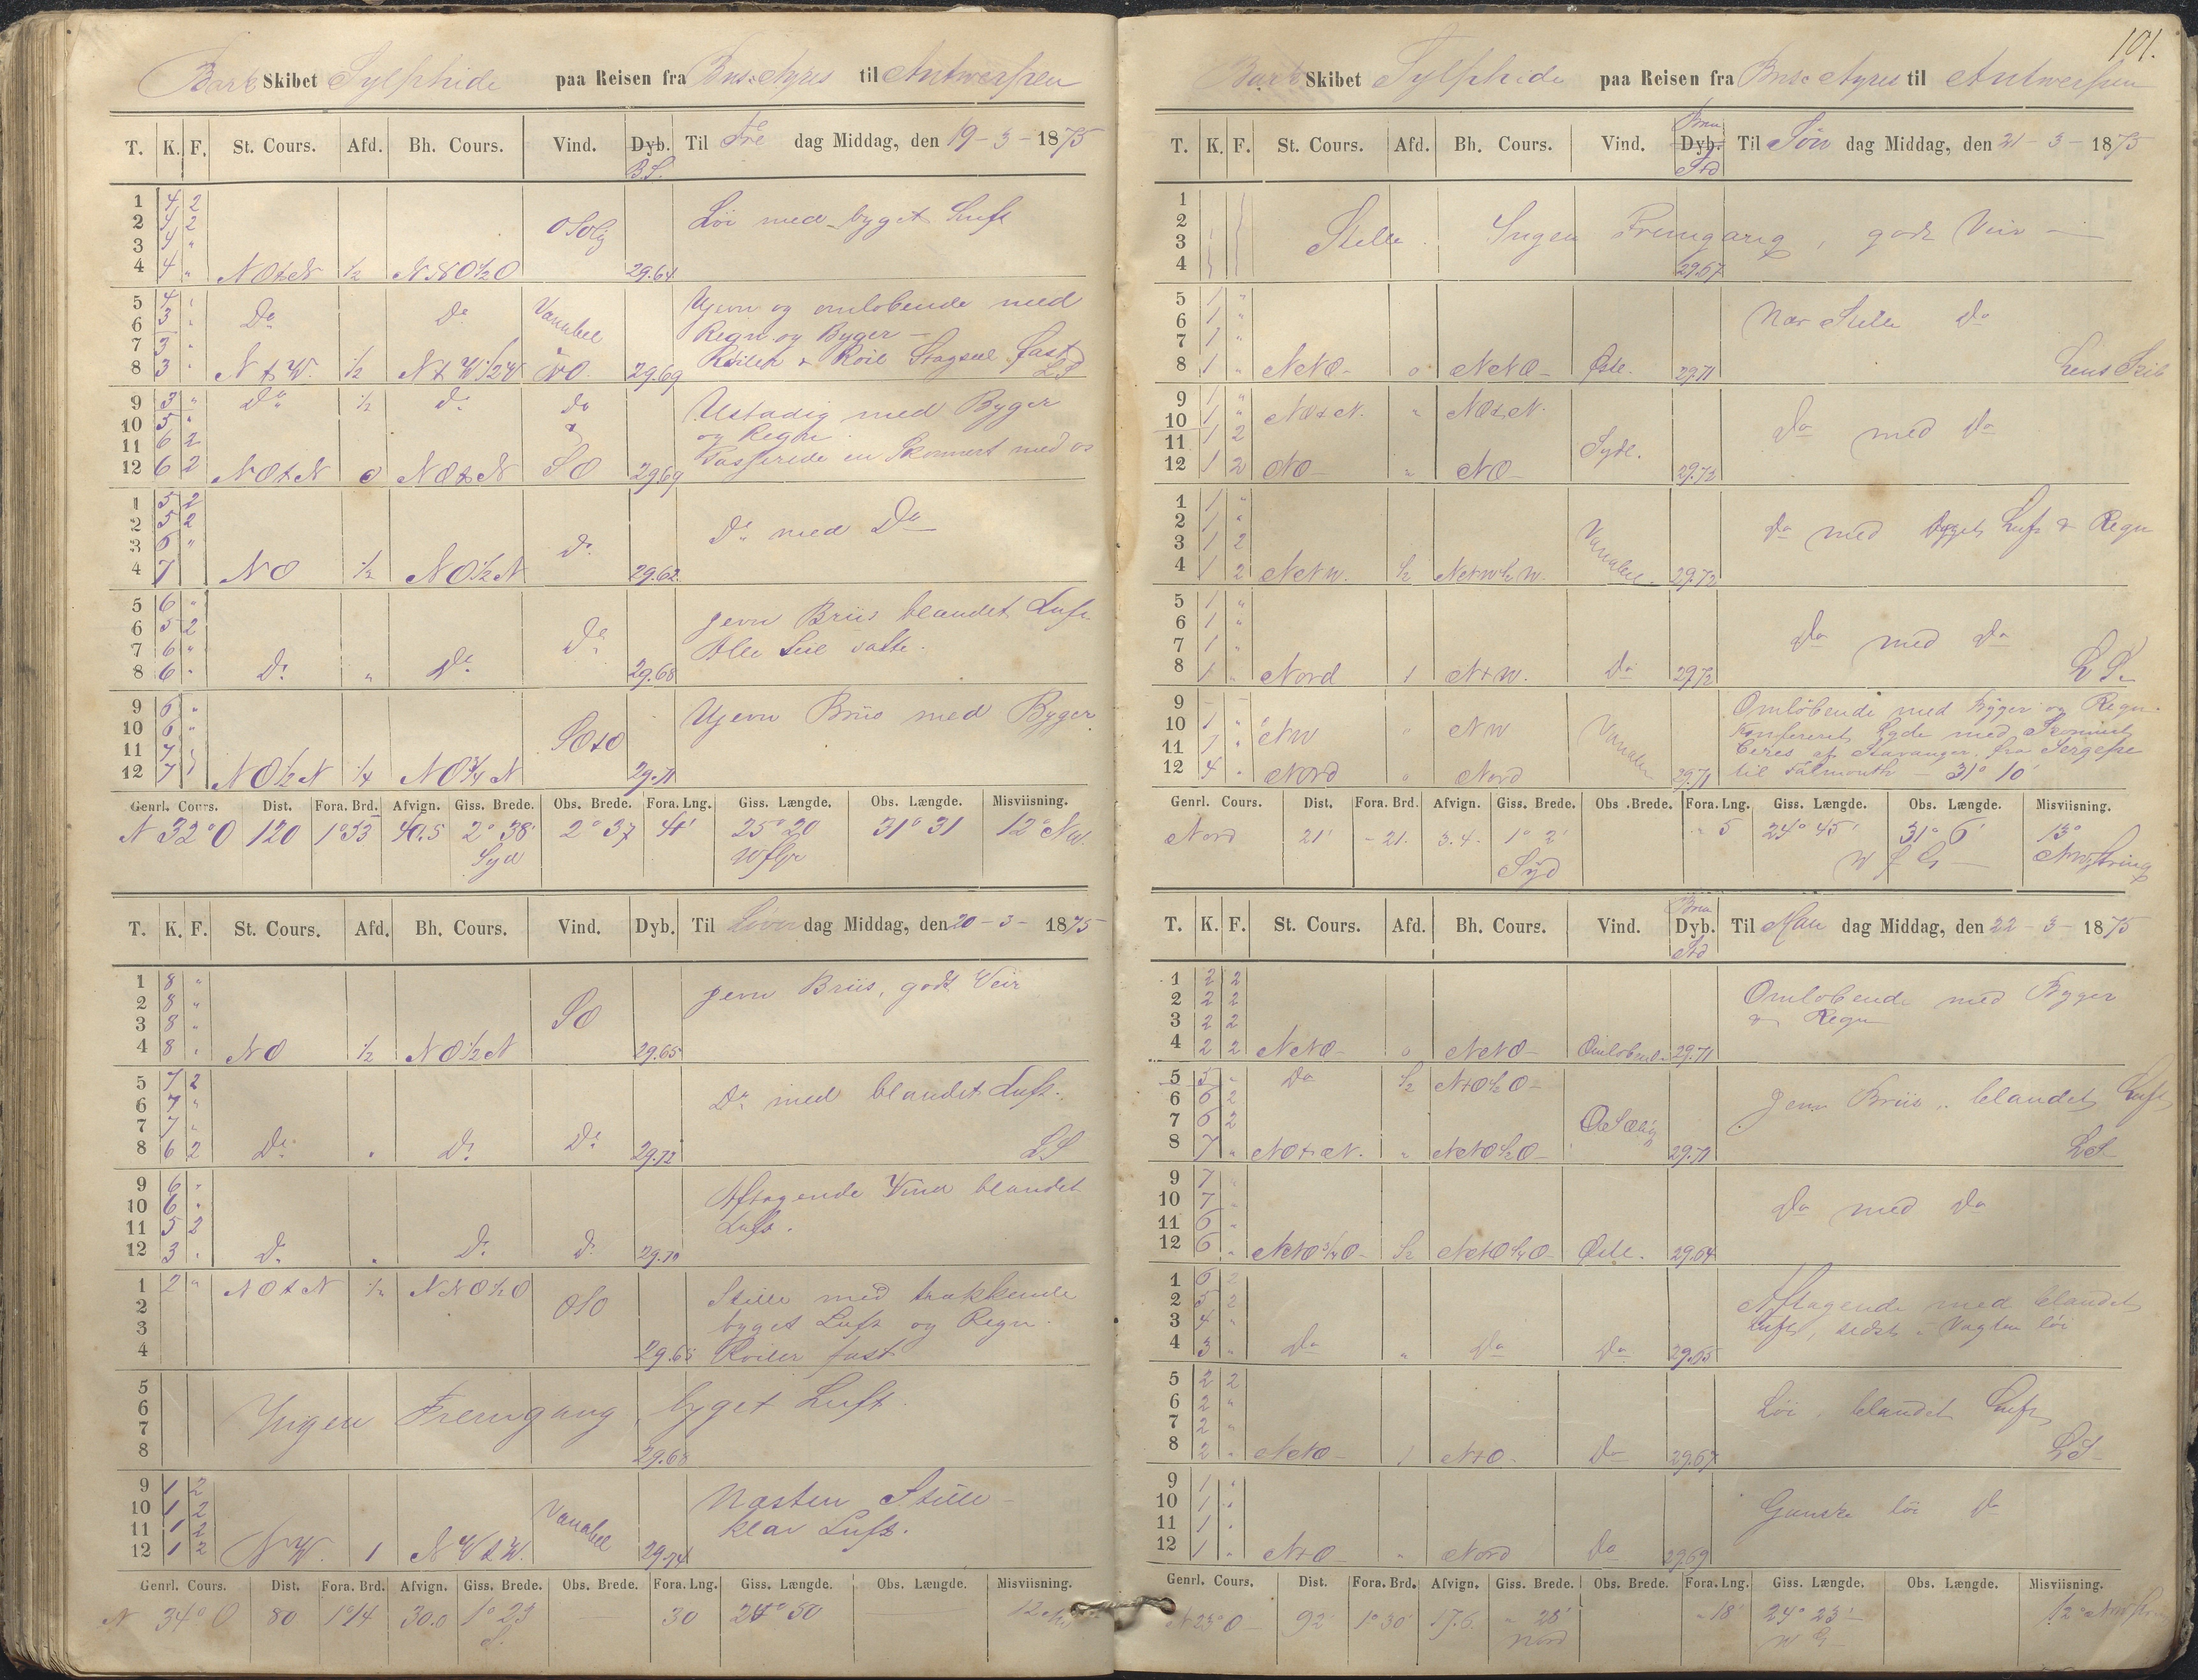 101.
Bark Skibet Sylphide paa Reisen fra Bns. Ayres til Antwerpen
T. K. F. St. Cours. Afd. Bh. Cours. Vind. Dyb. Til Fre dag Middag, den 19 - 3 - 1875
B.S.
1 4 2
2 4 2 OSOlig Löi med byget Luft
3 4 "
4 4 " NOtN 1/2 NNO1/2O 29.64
5 4 " Ujevn og omlobende med
6 3 " Do Do Variabel Regn og Byger -
7 3 "
8 3 " NtW. 1/2 NtW1/2W 29.69 Röiler & Roil Stagseil fast
LS
9 3 " Do 1/2 Do Do Ustadig med Byger
10 5 " og Regn
11 6 2
12 6 2 NOtN 0 NOtN SO 29.69 Passerede en Skonnert med os
1 5 2
2 5 2 Do med Do
3 6 " Do
4 7 NO 1/2 NO1/2N 29.62
5 6 " jevn Briis blandet Luft
6 5 2 Do
7 6 " Alle Seil satte.
8 6 " Do " Do 29.68
9 6 " Ujevn Briis med Byger
10 6 "
11 7 SOtO
12 7 NO1/2N 1/4 NO3/4N 29.71
Genrl. Cours. Dist. Fora. Brd. Afvign. Giss. Brede. Obs. Brede. Fora. Lng. Giss. Længde. Obs. Længde. Misviisning.
N 32° O 120 1°53 40.5 2° 38' 2° 37 41' 25° 20 31° 31 12° NW.
Syd
T. K. F. St. Cours. Afd. Bh. Cours. Vind. Dyb. Til Löver dag Middag, den 20 - 3 - 1875
1 8 " jevn Briis, godt Veir
2 8 " SO
3 8 "
4 8 " NO 1/2 NO1/2N 29.65
5 7 2
6 7 " Do med blandet Luft.
7 7 "
8 6 2 Do " Do Do 29.72 LS
9 6 " Aftagende Vind blandet
10 6 " Luft.
11 5 2
12 3 " Do " Do Do 29.70
1 2 " NOtN 1/2 NNO1/2O OSO Stille med trækkende
2 byget Luft og Regn.
3
4 29.65 Roiler fast
5
6 Ingen Fremgang, byget Luft.
7
8 29.68
9 1 2 Næsten Stille -
10 1 2 Variabel klar Luft.
11 1 2
12 1 2 NW. 1 NWtW. 29.74
Genrl. Cours. Dist. Fora. Brd. Afvign. Giss. Brede. Obs. Brede. Fora. Lng. Giss. Længde. Obs. Længde. Misviisning.
N 34° O 80 1°14 30.0 1° 23 30 24° 50 12
S.
Bark Skibet Sylphide paa Reisen fra Bns. Ayres til Antwerpen
T. K. F. St. Cours. Afd. Bh. Cours. Vind. Dyb. Til Sön dag Middag, den 21 - 3 - 1875
1
2 Stille. Ingen Fremgang, godt Veir
3
4 29.67
5 1 "
6 1 " Nær Stille Do
7 1 "
8 1 " NNO - 0 NNO - Östl. 29.71 Lens Skib
9 1 "
10 1 " NOtN. " NOtN.
11 1 2 Sydl. Do med Do
12 1 2 NO - " NO - 29.72
1 1 "
2 1 " Variabel Do med byget Luft & Regn
3 1 2
4 1 2 NNW. 1/2 NNW1/2W. 29.72
5 1 "
6 1 "
7 1 " Do med Do
8 1 " Nord 1 NtW. Do 29.72 LS
9 - - Omlöbende med Byger og Regn.
10 1 " NW " NW Variabel Konfereret Lgde med Skonnert
11 1 " Ceres af Stavanger, fra Sergipe
12 4 " Nord 0 Nord 29.71 til Falmouth - 31° 10'
Genrl. Cours. Dist. Fora. Brd. Afvign. Giss. Brede. Obs. Brede. Fora. Lng. Giss. Længde. Obs. Længde. Misviisning.
Nord 21' - 21. 3.4. 1° 2' " 5 24° 45' 31° 6' 13°
Syd
T. K. F. St. Cours. Afd. Bh. Cours. Vind. Dyb. Til Man dag Middag, den 22 - 3 - 1875
1 2 2
2 2 2 Omlöbende med Byger
3 2 2 & Regn
4 2 2 NNO - 0 NNO - Omlöbend. 29.71
5 5 " Do 1/2 NtO1/2O -
6 6 2 Jevn Briis, blandet Luft
7 6 2 OSOlig
8 7 " NOtN. " NNO1/2O - 29.71 LS
9 7 "
10 7 " Do med Do
11 6 "
12 6 " NNO3/4O - 1/2 NNO1/4O Östl. 29.64
1 6 2
2 5 2 Aftagende med blandet
3 4 " Luft, sidst i Vagten löi
4 3 " Do " Do Do 29.65
5 2 2
6 2 " Löi, blandet Luft
7 2 "
8 2 " NNO - 1 NtO. Do 29.67 LS
9 1 "
10 1 " Ganske löi Do
11 1 "
12 1 " NtO - " Nord Do 29.69
Genrl. Cours. Dist. Fora. Brd. Afvign. Giss. Brede. Obs. Brede. Fora. Lng. Giss. Længde. Obs. Længde. Misviisning.
N 23° O - 92' 1° 30' 17.6. " 28' " 18' 24° 23' 12°
Nord